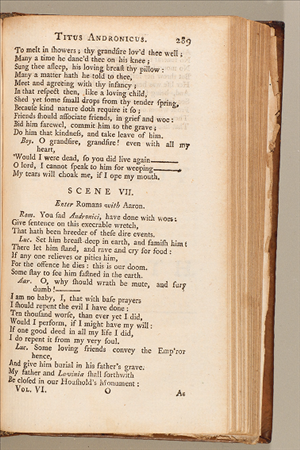 TITUS ANDRONICUS. 289
To melt in showers; thy grandsire lov'd thee well;
Many a time he danc'd thee on his knee;
Sung thee asleep, his loving breast thy pillow:
Many a matter hath he told to thee,
Meet and agreeing with thy infancy;
In that respect then, like a loving child,
Shed yet some small drops from thy tender spring,
Because kind nature doth require it so;
Friends should associate friends, in grief and woe:
Bid him farewel, commit him to the grave;
Do him that kindness, and take leave of him.
Boy. O grandsire, grandsire! even with all my
heart,
'Would I were dead, so you did live again——
O lord, I cannot speak to him for weeping——
My tears will choak me, if I ope my mouth.
SCENE VII.
Enter Romans with Aaron.
Rom. You sad Andronici, have done with woes:
Give sentence on this execrable wretch,
That hath been breeder of these dire events.
Luc. Set him breast deep in earth, and famish him:
There let him stand, and rave and cry for food:
If any one relieves or pities him,
For the offence he dies: this is our doom.
Some stay to see him fastned in the earth.
Aar. O, why should wrath be mute, and fury
dumb!——
I am no baby, I, that with base prayers
I should repent the evil I have done:
Ten thousand worse, than ever yet I did,
Would I perform, if I might have my will:
If one good deed in all my life I did,
I do repent it from my very soul.
Luc. Some loving friends convey the Emp'ror
hence,
And give him burial in his father's grave.
My father and Lavinia shall forthwith
Be closed in our Houshold's Monument:
VOL. VI. O As